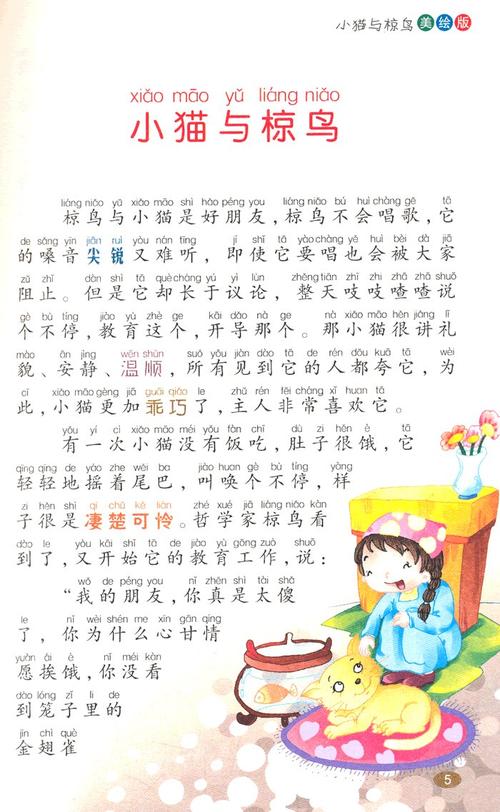 小猫与椋鸟 美绘版
xiǎo māo yǔ liáng niǎo
小猫与椋鸟
liáng niǎo yǔ xiǎo māo shì hǎo péng you liáng niǎo bú huì chàng gē tā
椋鸟与小猫是好朋友，椋鸟不会唱歌，它
de sǎng yīn jiān ruì yòu nán tīng jí shǐ tā yào chàng yě huì bèi dà jiā
的嗓音尖锐又难听，即使它要唱也会被大家
zǔ zhǐ dàn shì tā què cháng yú yì lùn zhěng tiān zhī zhī zhā zhā shuō
阻止。但是它却长于议论，整天吱吱喳喳说
gè bù tíng jiào yù zhè ge kāi dǎo nà ge nà xiǎo māo hěn jiǎng lǐ
个不停，教育这个，开导那个。那小猫很讲礼
mào ān jìng wēn shùn suǒ yǒu jiàn dào tā de rén dōu kuā tā wèi
貌、安静、温顺，所有见到它的人都夸它，为
cǐ xiǎo māo gèng jiā guāi qiǎo le zhǔ rén fēi cháng xǐ huan tā
此，小猫更加乖巧了，主人非常喜欢它。
yǒu yí cì xiǎo māo méi yǒu fàn chī dù zi hěn è tā
有一次小猫没有饭吃，肚子很饿，它
qīng qīng de yáo zhe wěi ba jiào huan gè bù tíng yàng
轻轻地摇着尾巴，叫唤个不停，样
zi hěn shì qī chǔ kě lián zhé xué jiā liáng niǎo kàn
子很是凄楚可怜。哲学家椋鸟看
dào le yòu kāi shǐ tā de jiào yù gōng zuò shuō
到了，又开始它的教育工作，说：
wǒ de péng you nǐ zhēn shì tài shǎ
“我的朋友，你真是太傻
le nǐ wèi shén me xīn gān qíng
了，你为什么心甘情
yuàn ái è nǐ méi kàn
愿挨饿，你没看
dào lóng zi lǐ de
到笼子里的
jīn chì què
金翅雀
5